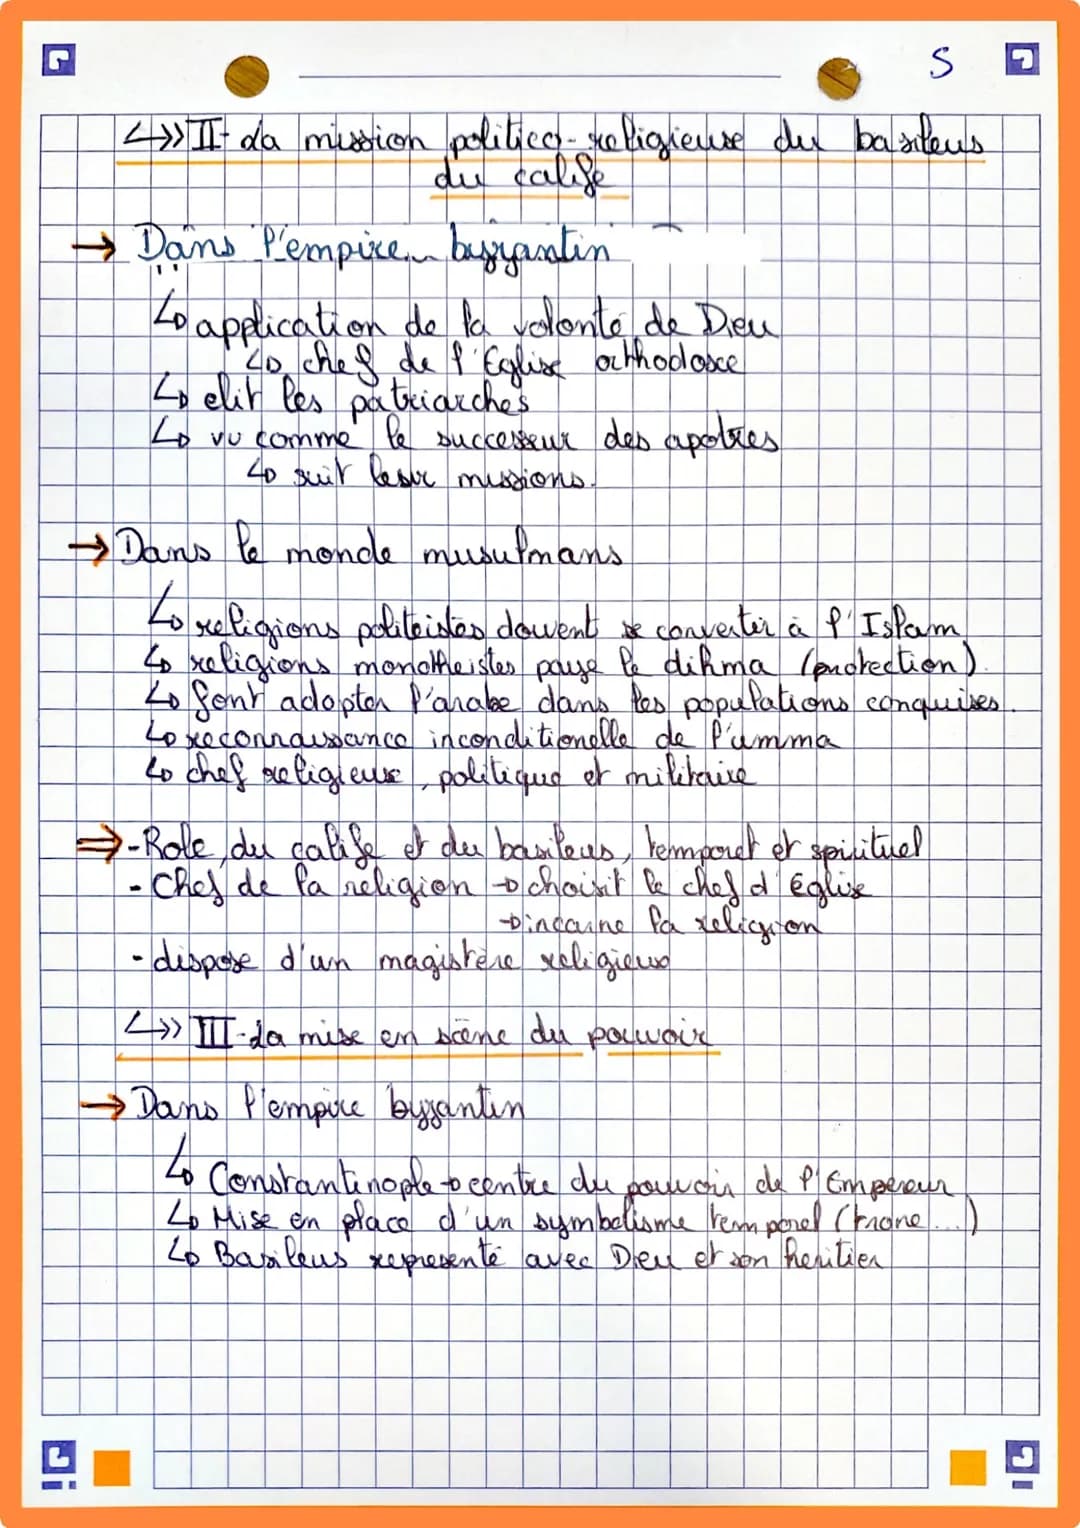 S
II- La mission politico-religieuse du basileus
du calife
→ Dans l'empire byzantin
↳ application de la volonté de Dieu
↳ chef de l'Eglise orthodoxe
↳ elit les patriarches
↳ vu comme le successeur des apotres
↳ suit leur missions.
→ Dans le monde musulmans
↳ religions politeistes doivent se convertir à l'Islam
↳ religions monotheistes paye le dihma (protection).
↳ font adopter l'arabe dans les populations conquises.
↳ reconnaissance inconditionelle de l'umma
↳ chef religieux, politique et militaire
⇒ - Role du calife et du basileus, temporel et spirituel
- Chef de la religion → choisit le chef d'église
→ incarne la religion
- dispose d'un magistère religieux
III- La mise en scène du pouvoir
→ Dans l'empire byzantin
↳ Constantinople → centre du pouvoir de l'Empereur
↳ Mise en place d'un symbolisme temporel (trone...)
↳ Basileus représenté avec Dieu et son heritier